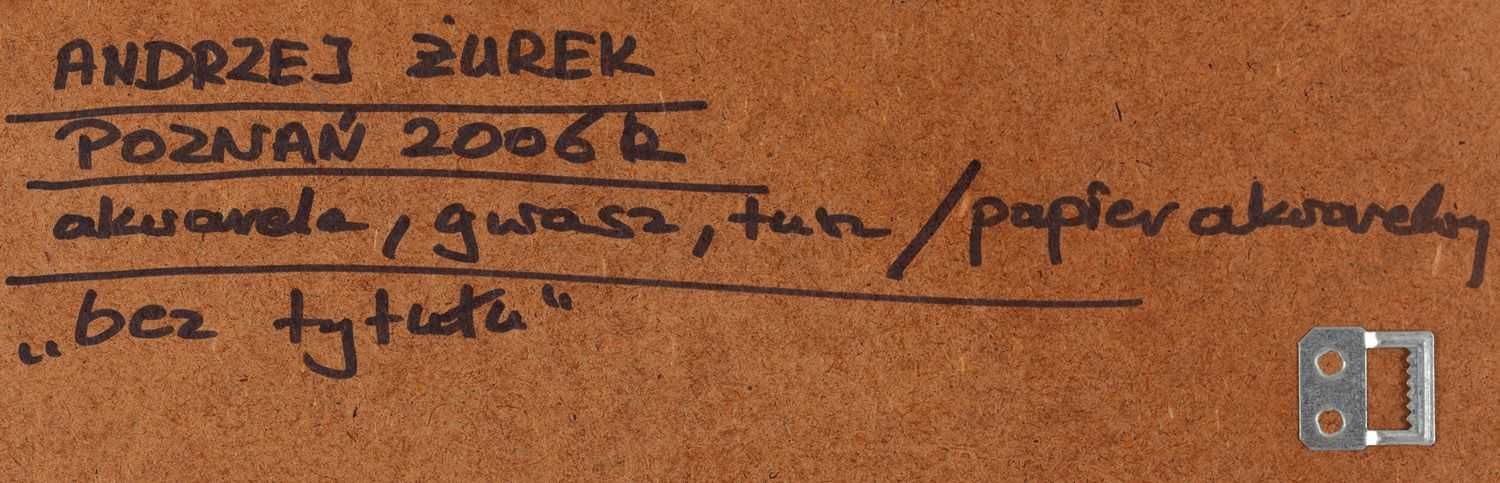 ANDRZEJ ŻUREK
POZNAŃ 2006 R
akwarela, gwasz, tusz / papier akwarelowy
„bez tytułu"